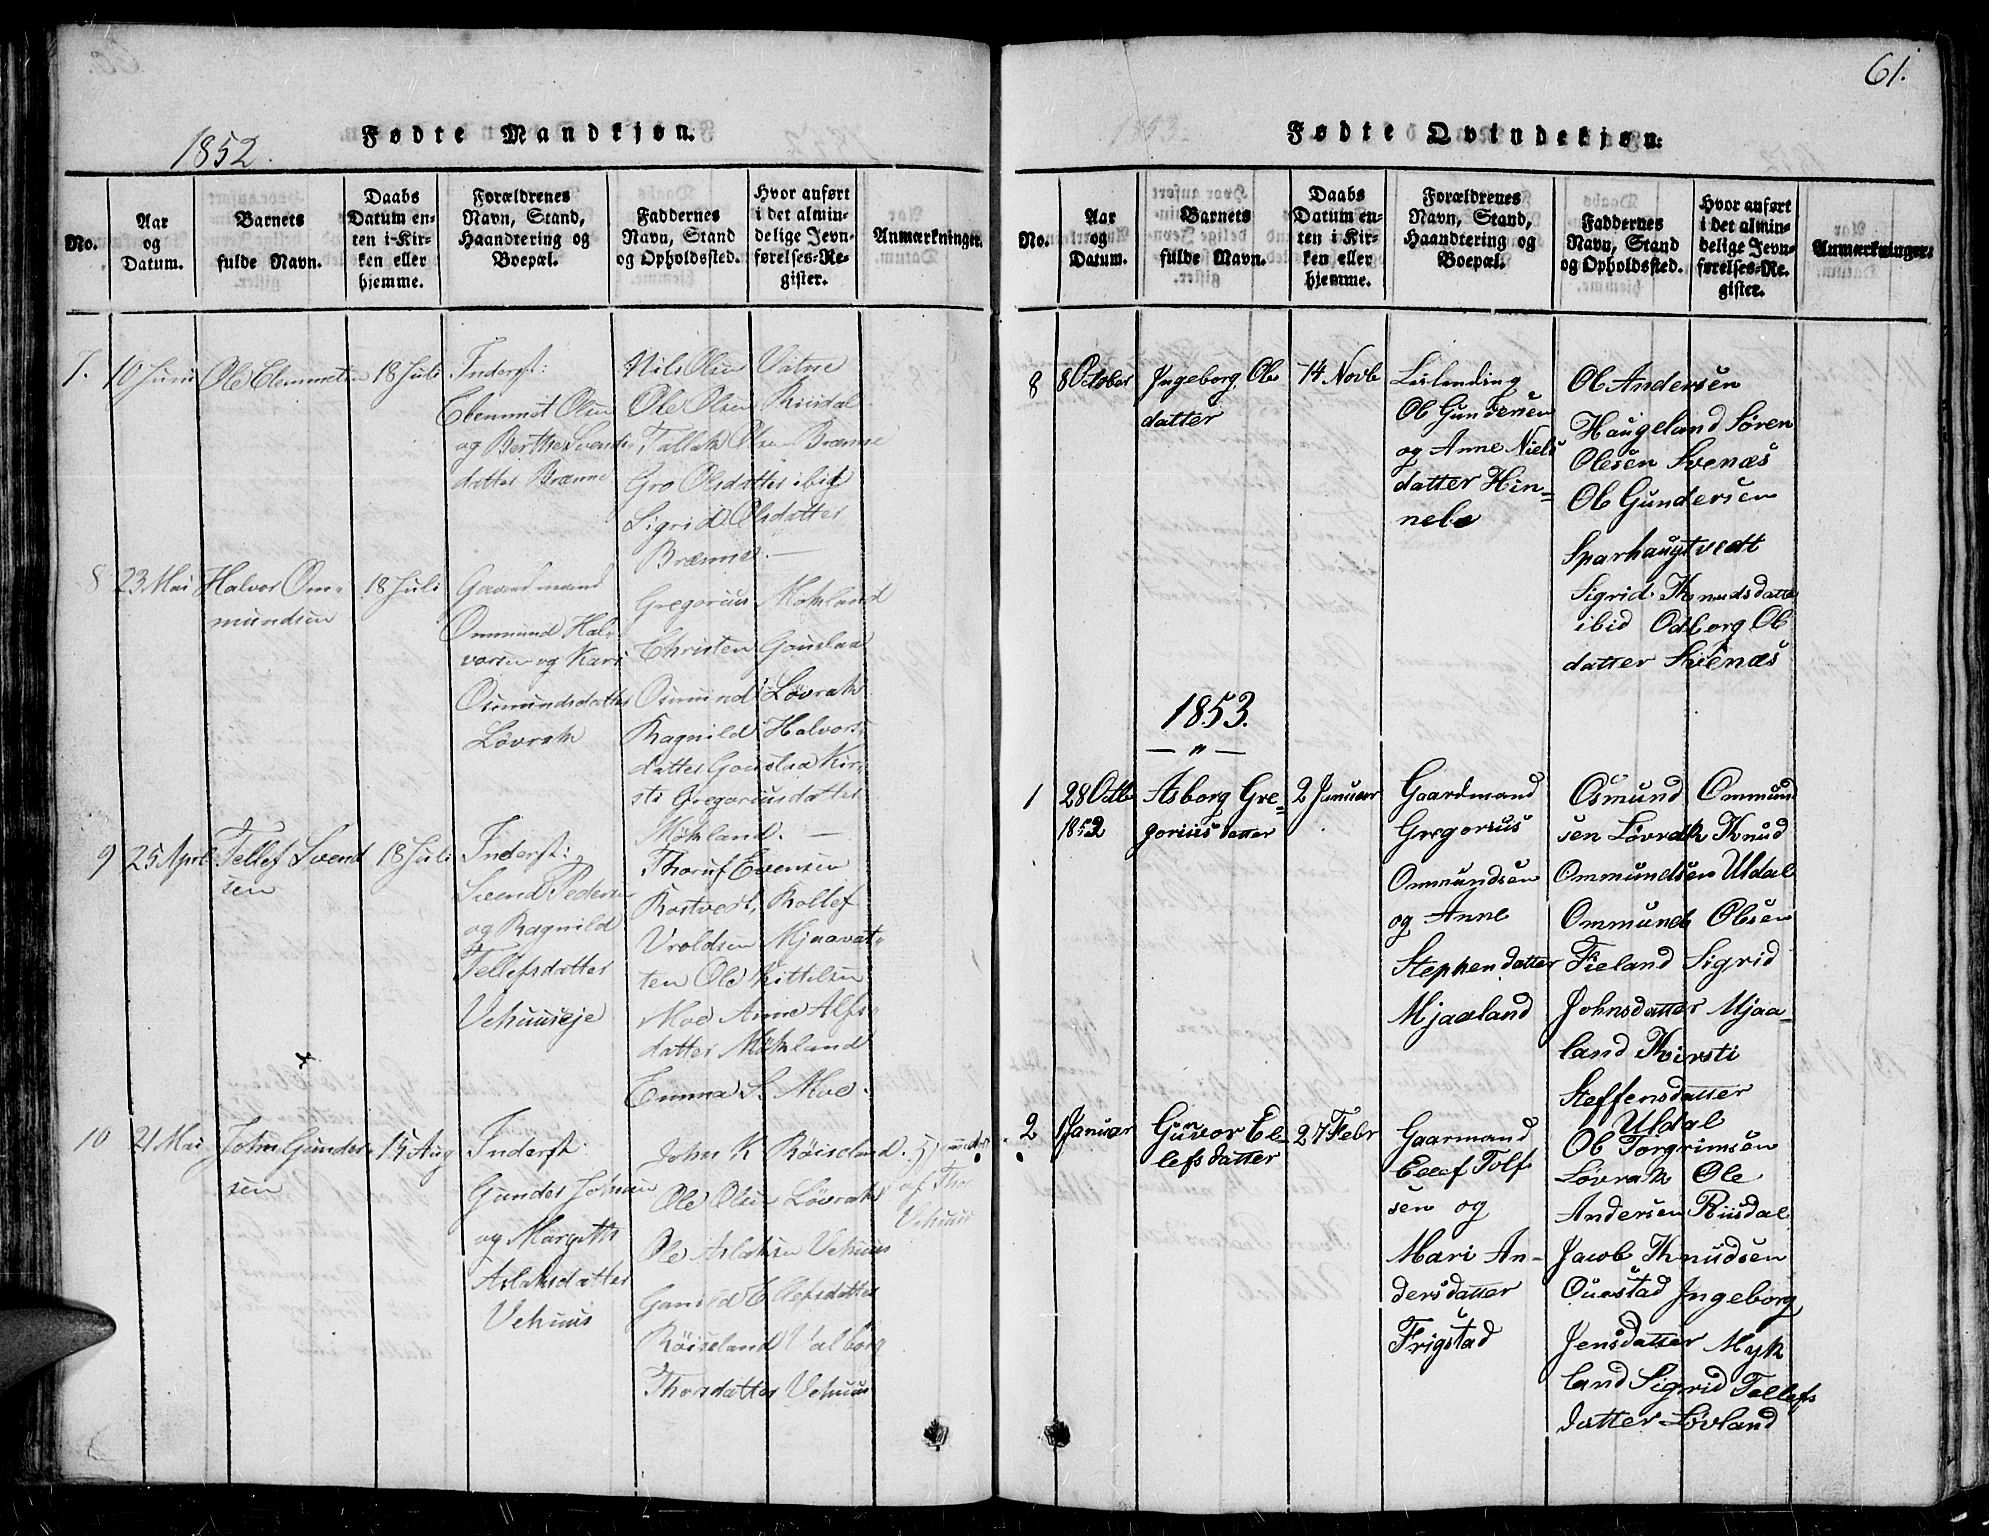 1852.
Fødte Mandkjøn.
No.
Aar
og
Datum.
Barnets
fulde Navn.
Daabs
Datum en-
ten i Kir-
ken eller
hjemme.
Forældrenes
Navn, Stand,
Haandtering og
Boepæl.
Faddernes
Navn, Stand
og Opholdssted.
Hvor anført
i det almin-
delige Jevn-
førelses-Re-
gister.
Anmærkninger.
7.
10 Juni
Ole Clemmetsen
18 Juli
Inderst:
Clemmet Olsen
og Berthe Svends
datter Brænne
Nils Olsen Vatne
Ole Olsen Risdal
Tallak Olsen Brænne
Gro Olsdatter ibid
Sigrid Olsdatter
Brænne. —
8
23 Mai
Halvor Om-
mundsen
18 Juli
Gaardmand
Ommund Hal-
vorsen og Kari
Osmundsdatter
Løvrak
Gregorius Mokland
Christen Gouslaa
Osmund Løvrak
Ragnild Halvors-
datter Gouslaa Kir-
sti Gregoriusdatter
Mokland. —
9
25 April
Tellef Svend
sen
18 Juli
Inderst:
Svend Peders
og Ragnild
Tellefsdatter
Vehuuseje
Thoruf Evensen
Rostvert, Rollef
Vroldsen Mjaavat-
ten Ole Kittelsen
Moe Anne Alfs-
datter Mokland
Emma S. Moe.
10
21 Mai
John Gunder-
sen
15 Aug
Inderst:
Gunder Johnsen
og Margith
Aslaksdatter
Vehuus
John K Røiseland.
Ole Olsen Løvrak
Ole Aslaksen Vehuus
Gunild Ellefsdatter
Røiseland Valborg
Thorsdatter Vehuus
af Thor
Vehuus
61.
Fødte Qvindekjøn.
No.
Aar
og
Datum.
Barnets
fulde Navn.
Daabs
Datum en-
ten i Kir-
ken eller
hjemme.
Forældrenes
Navn, Stand,
Haandtering og
Boepæl.
Faddernes
Navn, Stand
og Opholdssted.
Hvor anført
i det almin-
delige Jevn-
førelses-Re-
gister.
Anmærkninger.
8
8 October
Ingeborg Ole
datter
14 Novb
Leilending
Ole Gundersen
og Anne Niels
datter Hin-
nebo
Ole Andersen
Haugeland Søren
Olesen Svenæs
Ole Gundersen
Sparhaugtvedt
Sigrid Knudsdatter
ibid Odborg Ole
datter Svenæs
1853.
— " —
1
28 Octb
1852
Asborg Gre-
goriusdatter
2 Januar
Gaardmand
Gregorius
Ommundsen
og Anne
Stephendatter
Mjaaland
Osmund Ommund
sen Løvrak Knud
Ommundsen Uldal
Ommund Olesen
Fieland Sigrid
Johnsdatter Mjaa-
land Kirsti
Steffensdatter
Uldal
2
1 Januar
Gunvor El-
lefsdatter
27 Febr
Gaarmand
Ellef Tolf
sen og
Mari An-
dersdatter
Frigstad
Ole Torgrimsen
Løvrak Ole
Andersen Riisdal
Jacob Knudsen
Ouestad Ingeborg
Jensdatter Myk
land Sigrid Tollefs
datter Løvland